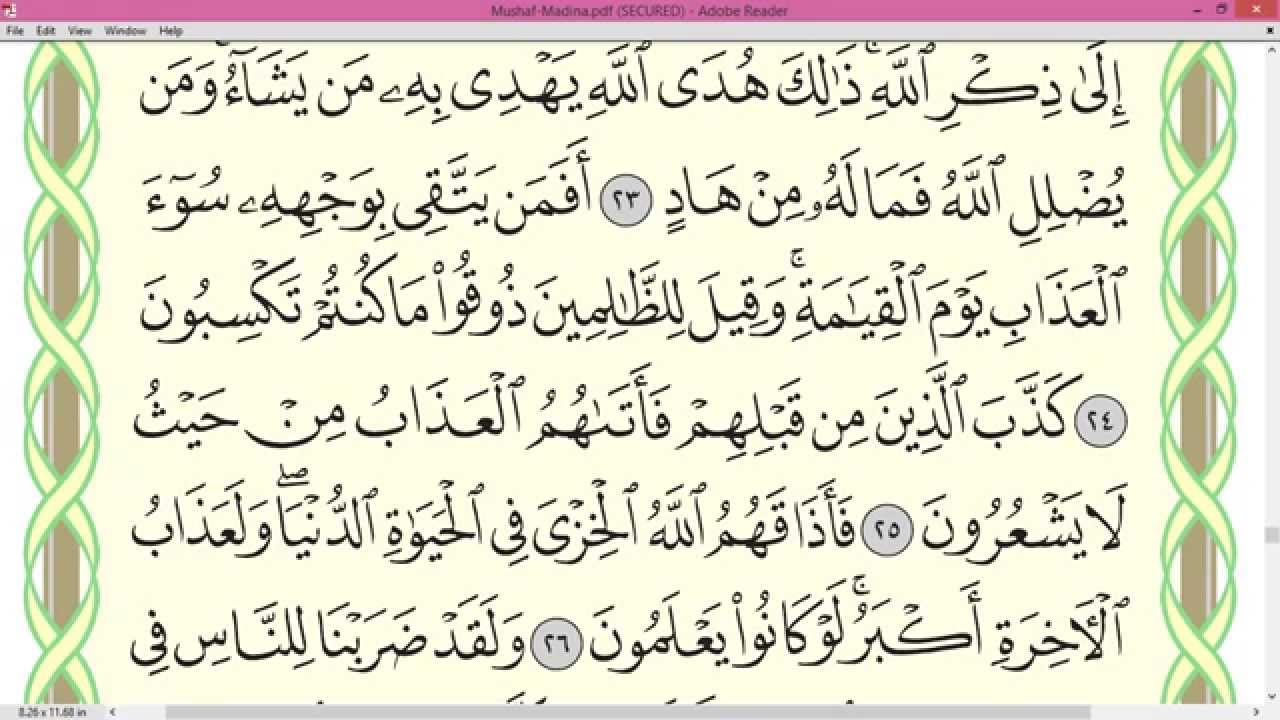 Mushaf-Madina.pdf (SECURED) - Adobe Reader
File Edit View Window Help
إِلَىٰ ذِكْرِ ٱللَّهِۚ ذَٰلِكَ هُدَى ٱللَّهِ يَهْدِى بِهِۦ مَن يَشَآءُۚ وَمَن
يُضْلِلِ ٱللَّهُ فَمَا لَهُۥ مِنْ هَادٍ ٢٣ أَفَمَن يَتَّقِى بِوَجْهِهِۦ سُوٓءَ
ٱلْعَذَابِ يَوْمَ ٱلْقِيَٰمَةِۚ وَقِيلَ لِلظَّٰلِمِينَ ذُوقُوا۟ مَا كُنتُمْ تَكْسِبُونَ
٢٤ كَذَّبَ ٱلَّذِينَ مِن قَبْلِهِمْ فَأَتَىٰهُمُ ٱلْعَذَابُ مِنْ حَيْثُ
لَا يَشْعُرُونَ ٢٥ فَأَذَاقَهُمُ ٱللَّهُ ٱلْخِزْىَ فِى ٱلْحَيَوٰةِ ٱلدُّنْيَاۖ وَلَعَذَابُ
ٱلْءَاخِرَةِ أَكْبَرُۚ لَوْ كَانُوا۟ يَعْلَمُونَ ٢٦ وَلَقَدْ ضَرَبْنَا لِلنَّاسِ فِى
8.26 x 11.68 in